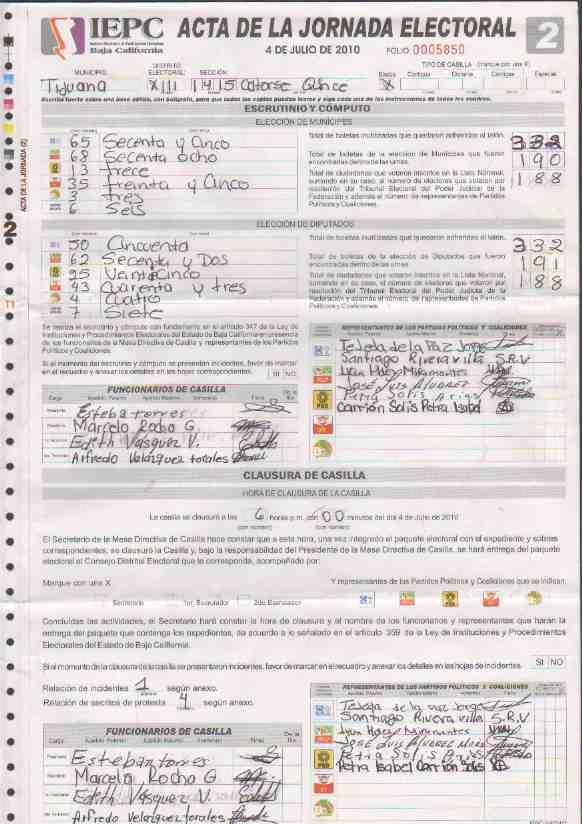 IEPC
Baja California
ACTA DE LA JORNADA ELECTORAL
2
4 DE JULIO DE 2010
FOLIO 0005850
TIPO DE CASILLA
MUNICIPIO:
DISTRITO ELECTORAL:
SECCIÓN:
Básica Contigua Contigua Especial
Tijuana XIII 1415 Catorse Quince X
ESCRUTINIO Y CÓMPUTO
ELECCIÓN DE MUNICIPES
65 Secenta y Cinco
68 Secenta ocho
13 Trece
35 Treinta y Cinco
3 Tres
6 Seis
Total de boletas inutilizadas que quedaron adheridas al talón. 332
Total de boletas de la elección de Munícipes que fueron encontradas dentro de las urnas. 190
Total de ciudadanos que votaron inscritos en la Lista Nominal, sumando en su caso, al número de electores que votaron por resolución del Tribunal Electoral del Poder Judicial de la Federación y además el número de representantes de Partidos Políticos y Coaliciones. 188
ELECCIÓN DE DIPUTADOS
50 Cincuenta
62 Secenta y Dos
25 Vainticinco
43 Cuarenta y tres
4 Cuatro
7 Siete
Total de boletas inutilizadas que quedaron adheridas al talón. 332
Total de boletas de la elección de Diputados que fueron encontradas dentro de las urnas. 191
Total de ciudadanos que votaron inscritos en la Lista Nominal, sumando en su caso, al número de electores que votaron por resolución del Tribunal Electoral del Poder Judicial de la Federación y además el número de representantes de Partidos Políticos y Coaliciones. 188
Se realiza el escrutinio y cómputo con fundamento en el artículo 347 de la Ley de Instituciones y Procedimientos Electorales del Estado de Baja California en presencia de los funcionarios de la Mesa Directiva de Casilla y representantes de los Partidos Políticos y Coaliciones.
Si al momento del escrutinio y cómputo se presentan incidentes, favor de marcar en el recuadro y anexar los detalles en las hojas correspondientes. SI NO
REPRESENTANTES DE LOS PARTIDOS POLITICOS Y COALICIONES
Tejeda de la Paz Jorge
Santiago Rivera villa S.R.V
Juan Haes Miramontes
José Luis Alvarez
Petra Solis Arias
Carrion Solis Petra Isabel
FUNCIONARIOS DE CASILLA
Esteba torres
Marcelo Rocho G.
Edith Vasquez V.
Alfredo Velazquez torales
CLAUSURA DE CASILLA
HORA DE CLAUSURA DE LA CASILLA
La casilla se clausuró a las 6 horas p.m. con 00 minutos del día 4 de Julio de 2010
El Secretario de la Mesa Directiva de Casilla hace constar que a esta hora, una vez integrado el paquete electoral con el expediente y sobres correspondientes, se clausuró la Casilla y, bajo la responsabilidad del Presidente de la Mesa Directiva de Casilla, se hará entrega del paquete electoral al Consejo Distrital Electoral que le corresponda, acompañado por:
Marque con una X Y representantes de los Partidos Políticos y Coaliciones que se indican
Secretario 1er. Escrutador 2do. Escrutador
Concluidas las actividades, el Secretario hará constar la hora de clausura y el nombre de los funcionarios y representantes que harán la entrega del paquete que contenga los expedientes, de acuerdo a lo señalado en el artículo 359 de la Ley de Instituciones y Procedimientos Electorales del Estado de Baja California.
Si al momento de la clausura de la casilla se presentaron incidentes, favor de marcar en el recuadro y anexar los detalles en las hojas de incidentes. SI NO
Relación de incidentes 1 según anexo.
Relación de escritos de protesta 4 según anexo.
REPRESENTANTES DE LOS PARTIDOS POLITICOS Y COALICIONES
Tejeda de la Paz Jorge
Santiago Rivera villa S.R.V
Juan Haes Miramontes
JOSÉ LUIS ALVAREZ
Petra Solis
Petra Isabel Carrion Solis
FUNCIONARIOS DE CASILLA
Esteban torres
Marcelo Rocho G
Edith Vasquez V.
Alfredo Velazquez torales